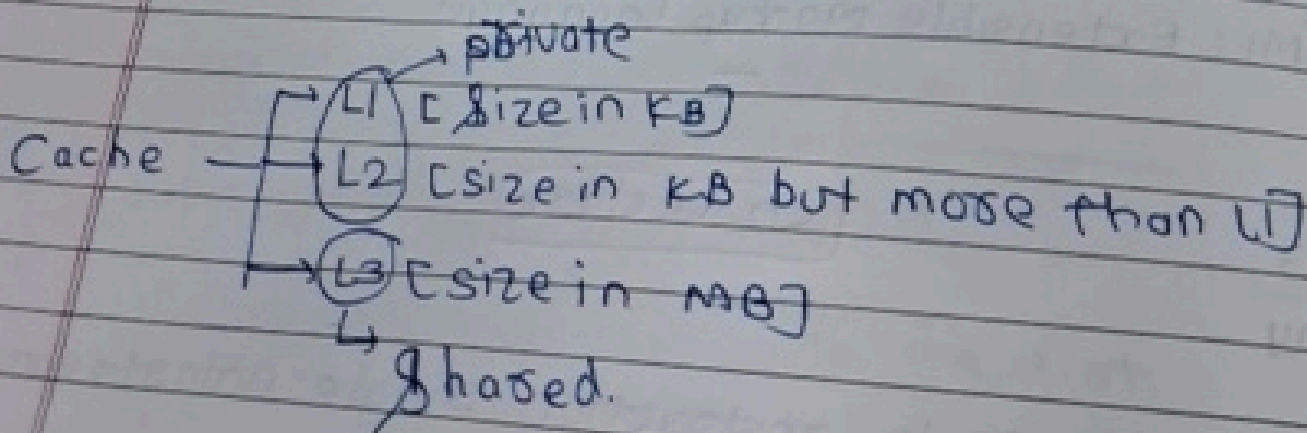 private
L1 [Size in KB]
Cache L2 [size in KB but more than L1]
L3 [size in MB]
Shared.